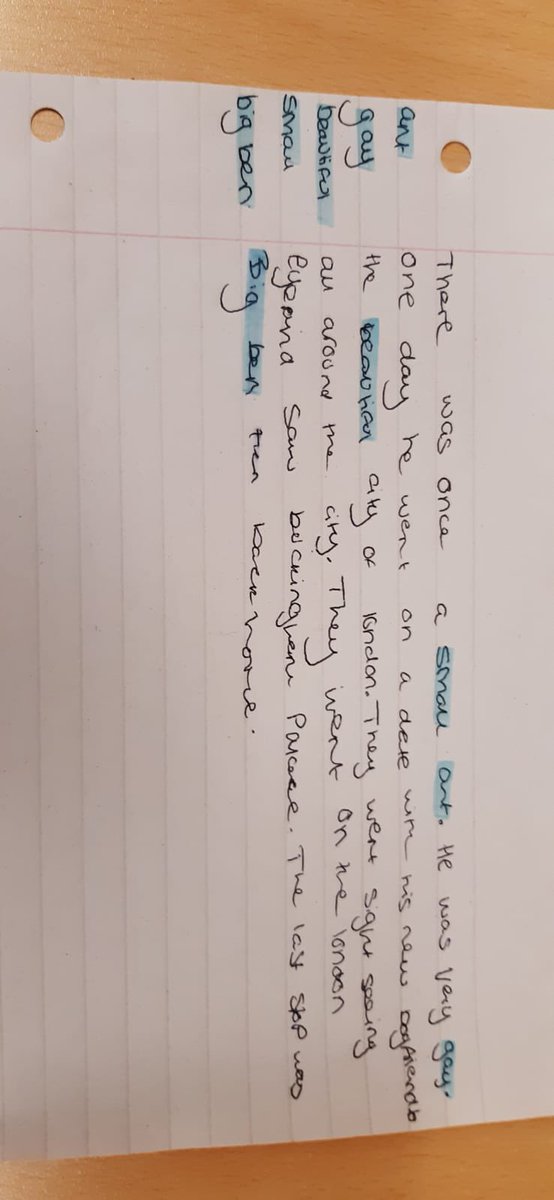 ant
gay
beautiful
small
big ben
There was once a small ant. He was very gay.
One day he went on a date with his new boyfriend to
the beautiful city of london. They went sight seeing
all around the city. They went on the london
eye and saw buckingham Palace. The last stop was
Big ben then back home.